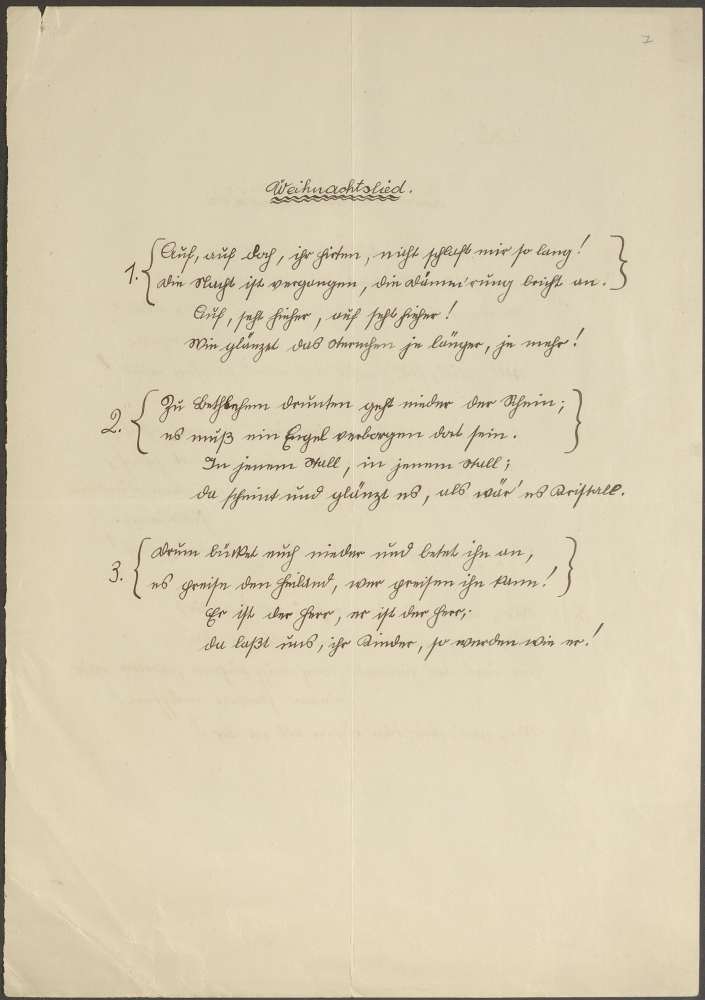 7
Weihnachtslied.
1. { Auf, auf doch, ihr Hirten, nicht schlaft mir so lang! }
die Nacht ist vergangen, die Dämm'rung bricht an.
Auf, seht hieher, auf seht hieher!
Wie glänzet das Sternchen je länger, je mehr!
2. { Zu Bethlehem drunten geht nieder der Schein; }
es muß ein Engel verborgen dort sein.
In jenem Stall, in jenem Stall;
da scheint und glänzt es, als wär' es Kristall.
3. { Drum bücket euch nieder und betet ihn an,
es preise den Heiland, wer preisen ihn kann! }
Er ist der Herr, er ist der Herr;
da laßt uns, ihr Kinder, so werden wie er!